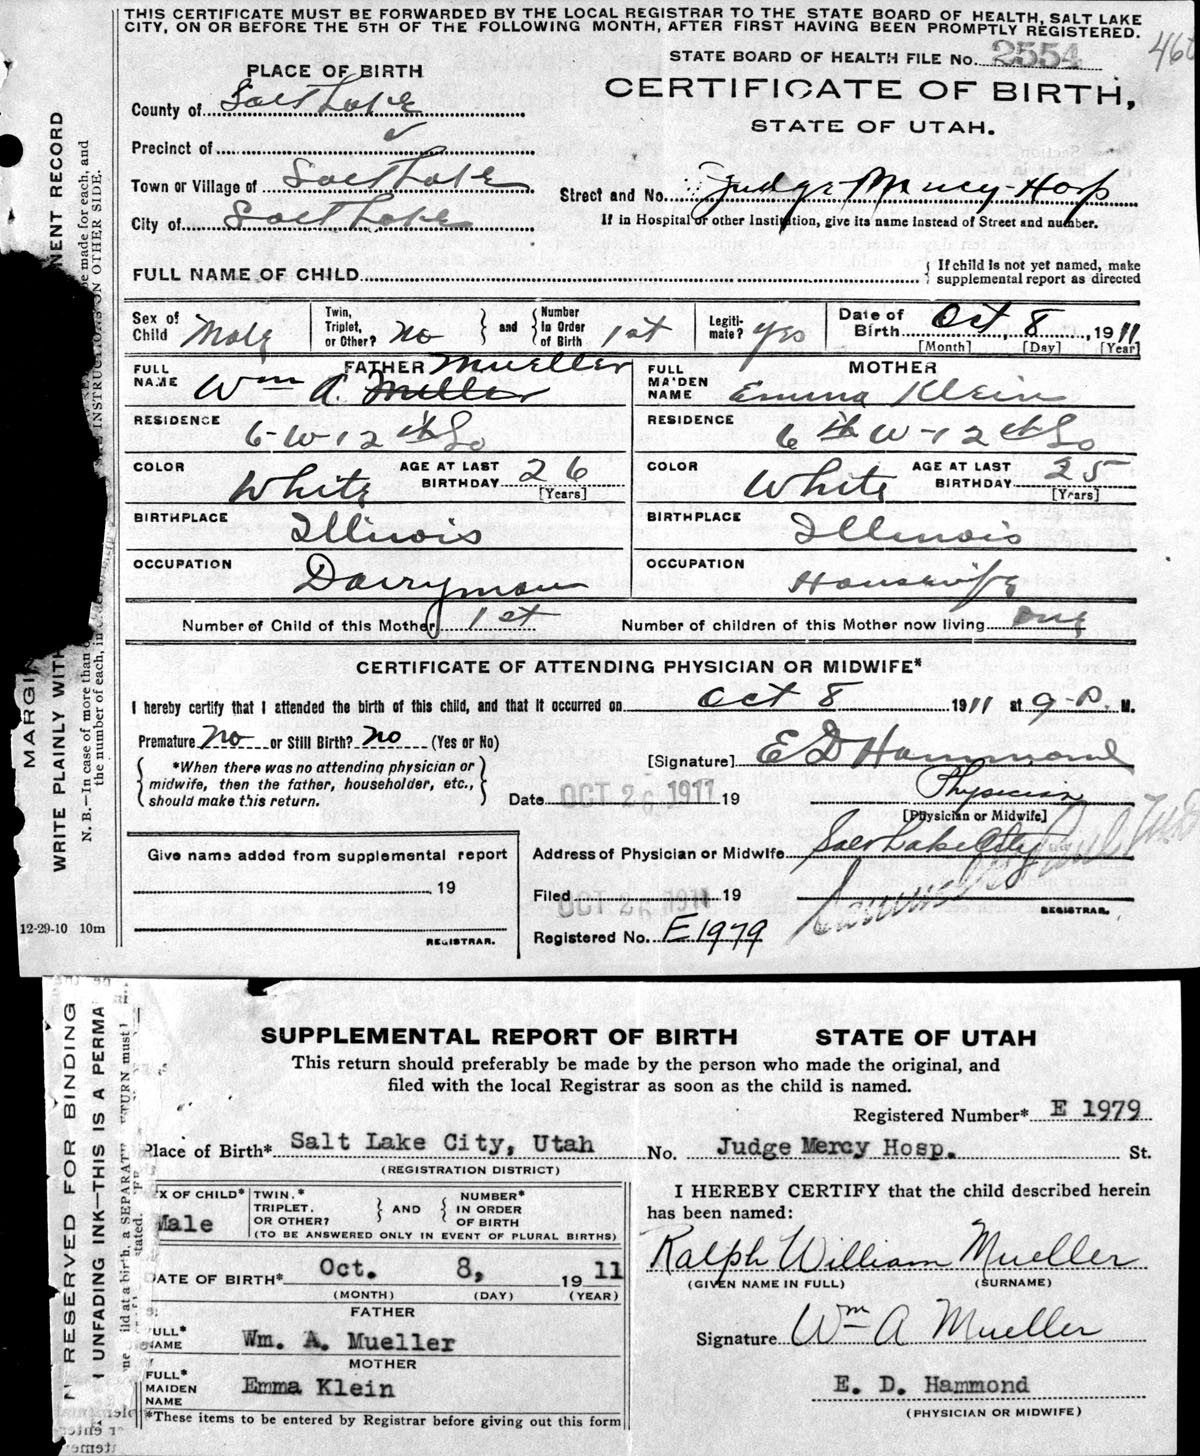 THIS CERTIFICATE MUST BE FORWARDED BY THE LOCAL REGISTRAR TO THE STATE BOARD OF HEALTH, SALT LAKE
CITY, ON OR BEFORE THE 5TH OF THE FOLLOWING MONTH, AFTER FIRST HAVING BEEN PROMPTLY REGISTERED.
STATE BOARD OF HEALTH FILE No. 2554
PLACE OF BIRTH
CERTIFICATE OF BIRTH,
County of Salt Lake
STATE OF UTAH.
Precinct of
Town or Village of Salt Lake
Street and No. Judge Mercy Hosp
City of Salt Lake
If in Hospital or other Institution, give its name instead of Street and number.
FULL NAME OF CHILD { If child is not yet named, make supplemental report as directed
Sex of Child Male Twin, Triplet, or Other? No } and { Number In Order of Birth 1st Legiti-mate? Yes Date of Birth Oct 8, 1911
[Month] [Day] [Year]
FATHER MOTHER
FULL NAME Wm A. Miller Mueller FULL MAIDEN NAME Emma Klein
RESIDENCE 6-W-12th So RESIDENCE 6th W-12th So
COLOR White AGE AT LAST BIRTHDAY 26 [Years] COLOR White AGE AT LAST BIRTHDAY 25 [Years]
BIRTHPLACE Illinois BIRTHPLACE Illinois
OCCUPATION Dairyman OCCUPATION Housewife
Number of Child of this Mother 1st Number of children of this Mother now living one
CERTIFICATE OF ATTENDING PHYSICIAN OR MIDWIFE*
I hereby certify that I attended the birth of this child, and that it occurred on Oct 8 1911 at 9-P. M.
Premature No or Still Birth? No (Yes or No)
[Signature] E D Hammond
{ *When there was no attending physician or midwife, then the father, householder, etc., should make this return. }
Date OCT 26 1911 19 Physician
[Physician or Midwife]
Give name added from supplemental report
Address of Physician or Midwife Salt Lake City
19
Filed OCT 26 1911 19
REGISTRAR.
Registered No. E1979
REGISTRAR.
12-29-10 10m
MARGIN
WRITE PLAINLY WITH
NENT RECORD
N. B.—In case of more than
be made for each, and
the number of each, in
INSTRUCTIONS ON OTHER SIDE.
SUPPLEMENTAL REPORT OF BIRTH STATE OF UTAH
This return should preferably be made by the person who made the original, and
filed with the local Registrar as soon as the child is named.
Registered Number* E 1979
Place of Birth* Salt Lake City, Utah No. Judge Mercy Hosp. St.
(REGISTRATION DISTRICT)
EX OF CHILD* Male TWIN,* TRIPLET, OR OTHER? } AND { NUMBER* IN ORDER OF BIRTH
(TO BE ANSWERED ONLY IN EVENT OF PLURAL BIRTHS)
I HEREBY CERTIFY that the child described herein
has been named:
Ralph William Mueller
(GIVEN NAME IN FULL) (SURNAME)
DATE OF BIRTH* Oct. 8, 1911
(MONTH) (DAY) (YEAR)
FATHER
FULL* NAME Wm. A. Mueller
Signature Wm A Mueller
MOTHER
FULL* MAIDEN NAME Emma Klein
E. D. Hammond
(PHYSICIAN OR MIDWIFE)
*These items to be entered by Registrar before giving out this form
RESERVED FOR BINDING
UNFADING INK—THIS IS A PERMA